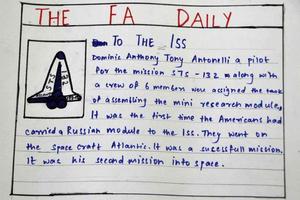 THE FA DAILY
TO THE ISS
Dominic Anthony Tony Antonelli a pilot
for the mission STS-132 along with
a crew of 6 members was assigned the task
of assembling the mini research module.
It was the first time the Americans had
carried a Russian module to the Iss. They went on
the space craft Atlantis. It was a sucessfull mission.
It was his second mission into space.